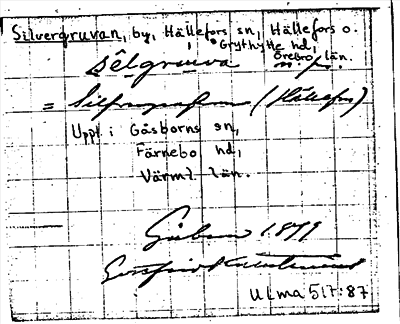 Silvergruvan, by, Hällefors sn, Hällefors o.
Grythytte hd,
Örebro län.
sêlgruva n. f.
= Silfvergrufvan (Hällefors)
Uppt. i Gåsborns sn,
Färnebo hd,
Värml. län.
1899
ULMA 517:87